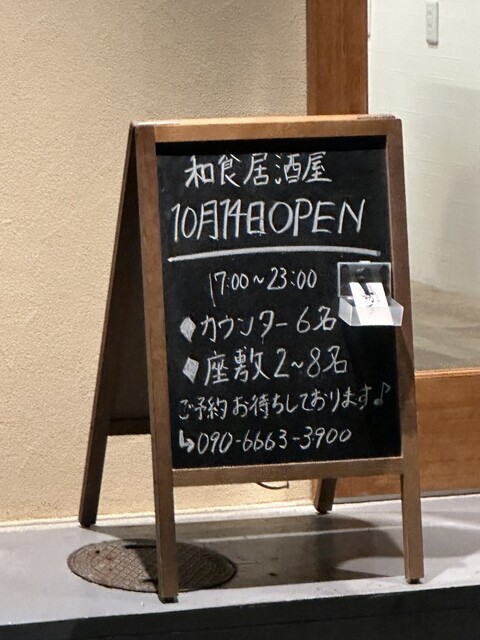 和食居酒屋
10月14日OPEN
17:00～23:00
◆カウンター6名
◆座敷2～8名
ご予約お待ちしております♪
↳090-6663-3900